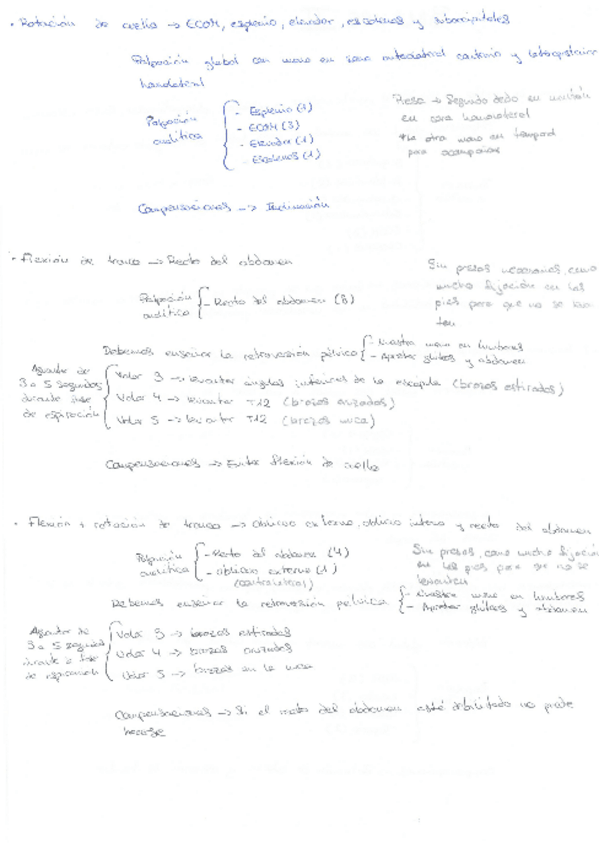 · Rotación de cuello → ECOM, esplenio, elevador, escalenos y suboccipitales
Palpación global con mano en zona anterolateral contraria y lateroposterior
homolateral
Palpación analítica
- Esplenio (1)
- ECOM (3)
- Elevador (1)
- Escalenos (1)
Presa → Segundo dedo en mentón
en cara homolateral
*La otra mano en temporal
para acompañar
Compensaciones → Inclinación
· Flexión de tronco → Recto del abdomen
Palpación analítica
- Recto del abdomen (8)
Sin presas necesarias, como
mucho fijación en los
pies para que no se levan
ten
Debemos enseñar la retroversión pélvica
- Nuestra mano en lumbares
- Apretar glúteos y abdomen
Aguantar de
3 a 5 segundos
durante fase
de espiración
Valor 3 → levantar ángulos inferiores de la escápula (brazos estirados)
Valor 4 → levantar T12 (brazos cruzados)
Valor 5 → levantar T12 (brazos nuca)
Compensaciones → Evitar flexión de cuello
· Flexión + rotación de tronco → Oblicuo externo, oblicuo interno y recto del abdomen
Palpación analítica
- Recto del abdomen (4)
- oblicuo externo (1)
(contralateral)
Sin presas, como mucho fijación
en los pies para que no se
levanten
Debemos enseñar la retroversión pélvica
- Nuestra mano en lumbares
- Apretar glúteos y abdomen
Aguantar de
3 a 5 segundos
durante la fase
de espiración
Valor 3 → brazos estirados
Valor 4 → brazos cruzados
Valor 5 → brazos en la nuca
Compensaciones → Si el recto del abdomen está debilitado no puede
hacerse